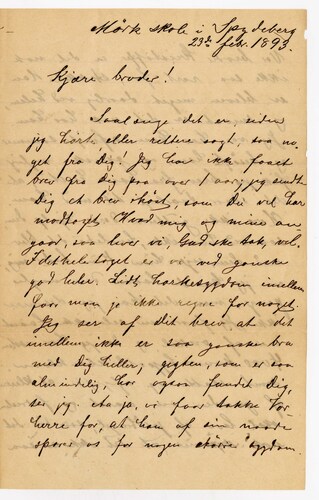 Mørk skole i Spydeberg
23de febr. 1893.
Kjære broder!
Saalænge det er, siden
jeg hørte eller rettere sagt, saa no-
get fra Dig! Jeg har ikke faaet
brev fra Dig paa over 1 aar; jeg sendte
Dig et brev ihøst, som Du vel har
modtaget. Hvad mig og mine an-
gaar, saa lever vi, Gud ske tak, vel.
I det hele taget er vi ved ganske
god helse. Lidt harkesygdom imellem
faar man jo ikke regne for noget.
Jeg ser af Dit brev, at det
imellem ikke er saa ganske bra
med Dig heller; gigten, som er saa
almindelig, har ogsaa fundet Dig,
ser jeg. Aa ja, vi faar takke Vor-
herre for, at han af sin naade
sparer os for nogen større sygdom.